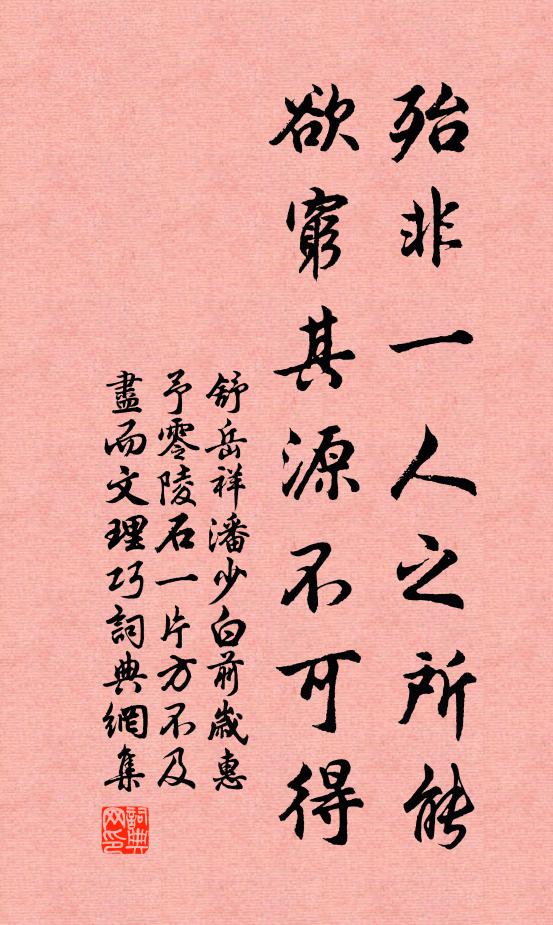 殆非一人之所能
欲窮其源不可得
舒岳祥潘少白前歲惠
予零陵石一片方不及
盡而文理巧詞典網集
詞典
网印